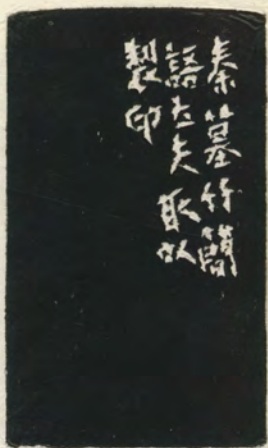 秦墓竹簡
語夫取以
製印